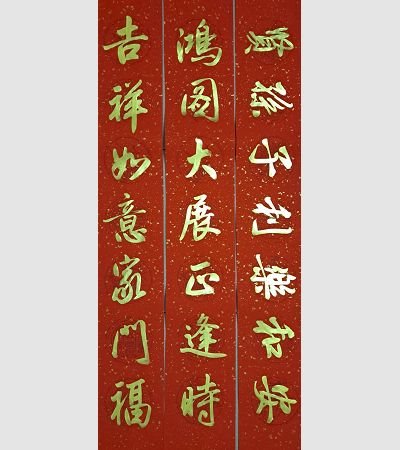 安和樂利子孫賢
鴻圖大展正逢時
吉祥如意家門福